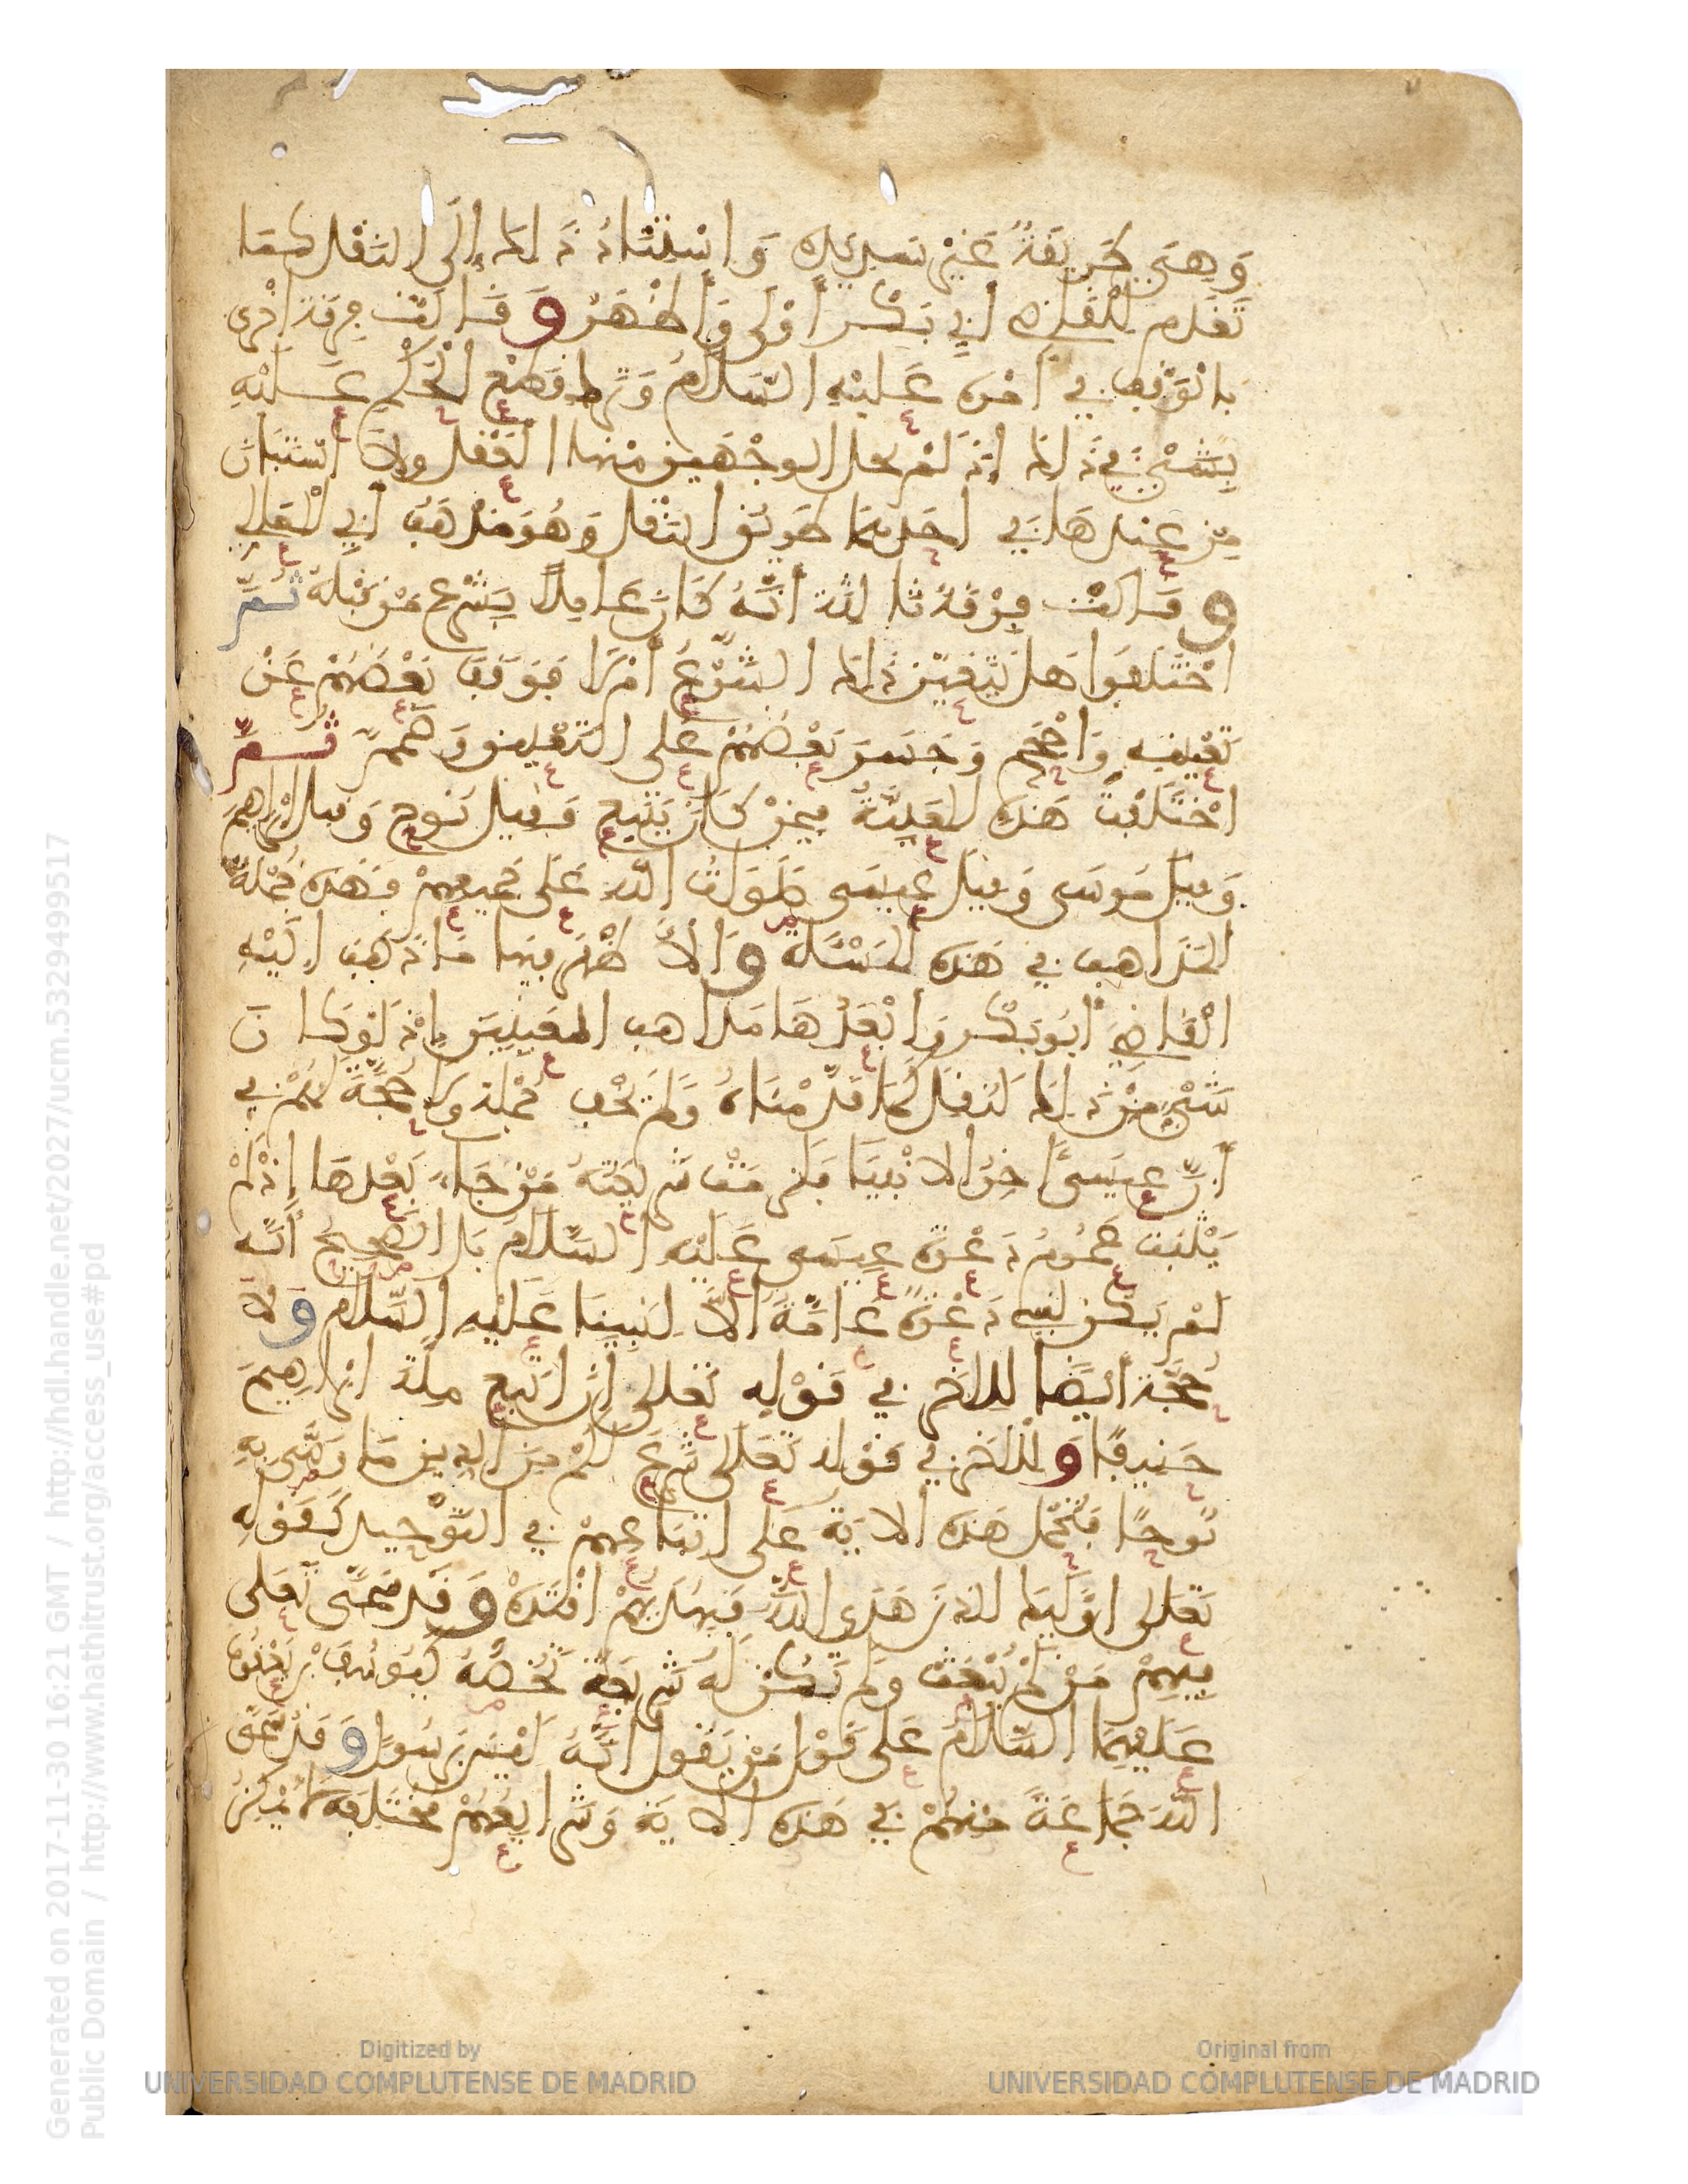 وَهِيَ طَرِيقَةٌ غَيْرُ سَدِيدَة وَاسْتِنَادُ ذَلِكَ إِلَى النَّقْلِ كَمَا
تَقَدَّم لِلْقَاضِي أَبِي بَكْر أَوْلَى وَأَظْهَرُ وَقَالَتْ فِرْقَة اخْرَى
بِالْوَقْفِ فِي أَمْرِه عَلَيْهِ السَّلَامُ وَتَرْكِ قَطْعِ الْحُكْمِ عَلَيْهِ
بِشَيْءٍ فِي ذَلِكَ إِذْ لَمْ يحل الوَجْهَيْن مِنْهَا الْعَقْل ولَا اسْتَبَانَ
مِنْ عِنْدَهَا فِي احَدِهِمَا طَرِيقُ النَّقْل وَهُوَ مَذْهَبُ أَبِي الْمَعَالِي
وقَالَتْ فِرْقَةٌ ثَالِثَة أَنَّهُ كَانَ عَامِلًا بِشَرْعِ مَنْ قَبْلَهُ ثُمَّ
اخْتَلَفُوا هَل يَتَعَيَّن ذَلِكَ الشَّرْعُ أَمْ لَا فَوَقَفَ بَعْضُهُمْ عَنْ
تَعْيِينِهِ وَأَحْجَمَ وَجَسَرَ بَعْضُهُمْ عَلَى التَّعْيِين وَصَمَّمَ ثُمَّ
اخْتَلَفَتْ هَذِه المُعَيِّنَةُ فِيمَنْ كَانَ يَتَّبِع فَقِيل نُوح وَقِيل إِبْرَاهِيمَ
وَقِيلَ مُوسَى وَقِيلَ عِيسَى صَلَوَاتُ اللَّهِ عَلَى جَمِيعِهِمْ فَهَذِه جُمْلَةُ
الْمَذَاهِبِ فِي هَذِه الْمَسْئَلَة وَالأَظْهَرُ فِيهَا مَا ذَهَبَ إِلَيْهِ
الْقَاضِي أَبُو بَكْر وَأَبْعَدُهَا مَذَاهِب الْمُعَيِّنِينَ إِذْ لَوْ كَانَ
شَيْءٌ مِنْ ذَلِكَ لَنُقِلَ كَمَا قَدَّمْنَاهُ وَلَمْ يَخْفَ جُمْلَة وَلَا حُجَّةَ لَهُمْ فِي
أَنَّ عِيسَى آخِرُ الانْبِيَا فَلَزِمَتْ شَرِيعَتُهُ مَنْ جَاءَ بَعْدَهَا إِذْ لَمْ
يَثْبُت عُمُومُ دَعْوَة عِيسَى عَلَيْهِ السَّلَامُ بَل الصَّحِيحُ أَنَّه
لَمْ يَكُنْ لِنَبِيّ دَعْوَةٌ عَامَّةٌ إلَّا لِنَبِيِّنَا عَلَيْهِ السَّلَام وَلَا
حُجَّةَ أَيْضًا لِلاخَر فِي قَوْلِهِ تَعَالَى أَنِ اتَّبِعْ مِلَّةَ ابْرَاهِيمَ
حَنِيفًا وَلِلاخَر فِي قَوْلِه تَعَالَى شَرَعَ لَكُم مِنَ الدِّينِ مَا وَصَّى بِهِ
نُوحًا فَتُحْمَل هَذِه الايَة عَلَى اتِّبَاعِهِمْ فِي التَّوْحِيدِ كَقَوْلِهِ
تَعَالَى أُوْلَئِكَ الَّذِينَ هَدَى اللَّهُ فَبِهُدَاهُمُ اقْتَدِهْ وَقَدْ سَمَّى تَعَالَى
فِيهِمْ مَنْ لَمْ يُبْعَثْ وَلَمْ تَكُنْ لَهُ شَرِيعَةٌ تَخُصُّهُ كَيُوسُفَ بْنِ يَعْقُوبَ
عَلَيْهِمَا السَّلَامُ عَلَى قَوْلِ مَنْ يَقُولُ أَنَّهُ لَيْسَ بِرَسُولٍ وَقَدْ سَمَّى
اللَّهُ جَمَاعَةً مِنْهُمْ فِي هَذِه الايَة وَشَرَايِعُهُمْ مُخْتَلِفَة لَا يُمْكِنُ
Generated on 2017-11-30 16:21 GMT / http://hdl.handle.net/2027/ucm.5329499517
Public Domain / http://www.hathitrust.org/access_use#pd
Digitized by
UNIVERSIDAD COMPLUTENSE DE MADRID
Original from
UNIVERSIDAD COMPLUTENSE DE MADRID